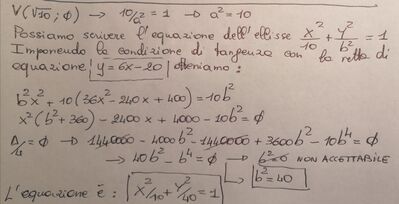 V(√10; ϕ) → 10/a² = 1 → a² = 10
Possiamo scrivere l'equazione dell'ellisse x²/10 + y²/b² = 1
Imponendo la condizione di tangenza con la retta di
equazione y = 6x - 20 otteniamo:
b²x² + 10(36x² - 240x + 400) = 10b²
x²(b² + 360) - 2400x + 4000 - 10b² = ϕ
Δ/4 = ϕ → 1440000 - 4000b² - 1440000 + 3600b² - 10b⁴ = ϕ
→ 40b² - b⁴ = ϕ → b² = ϕ NON ACCETTABILE
→ b² = 40
L'equazione è: x²/10 + y²/40 = 1